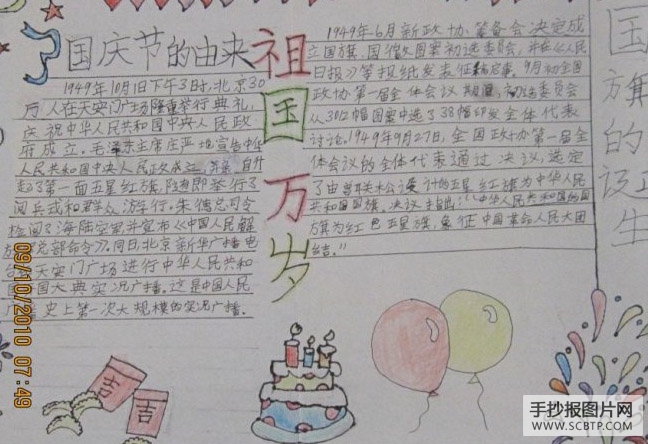 国庆节的由来
1949年10月1日下午3时,北京30
万人在天安门广场隆重举行典礼,
庆祝中华人民共和国中央人民政
府成立。毛泽东主席庄严地宣告中华
人民共和国中央人民政府成立,并亲自升
起了第一面五星红旗,随即举行了
阅兵式和群众游行。朱德总司令
检阅了海陆空军并宣布《中国人民解
放总部命令》。同日北京新华广播电
台天安门广场进行中华人民共和
国大典实况广播。这是中国人民
史上第一次大规模的实况广播。
祖国万岁
1949年6月新政协筹备会决定成
立国旗、国徽图案初选委员会,并在《人民
日报》等报纸发表征稿启事。9月初全国
政协第一届全体会议
从3012幅图案中选了38幅印发全体代表
讨论。1949年9月27日,全国政协第一届全
体会议的全体代表通过决议,选定
了由曾联松设计的五星红旗为中华人民
共和国国旗。决议
旗为红色五星旗,象征中国革命人民大团
结。"
国旗的诞生
吉
吉
09/10/2010 07:49
手抄报图片网
WWW.SCBTP.COM